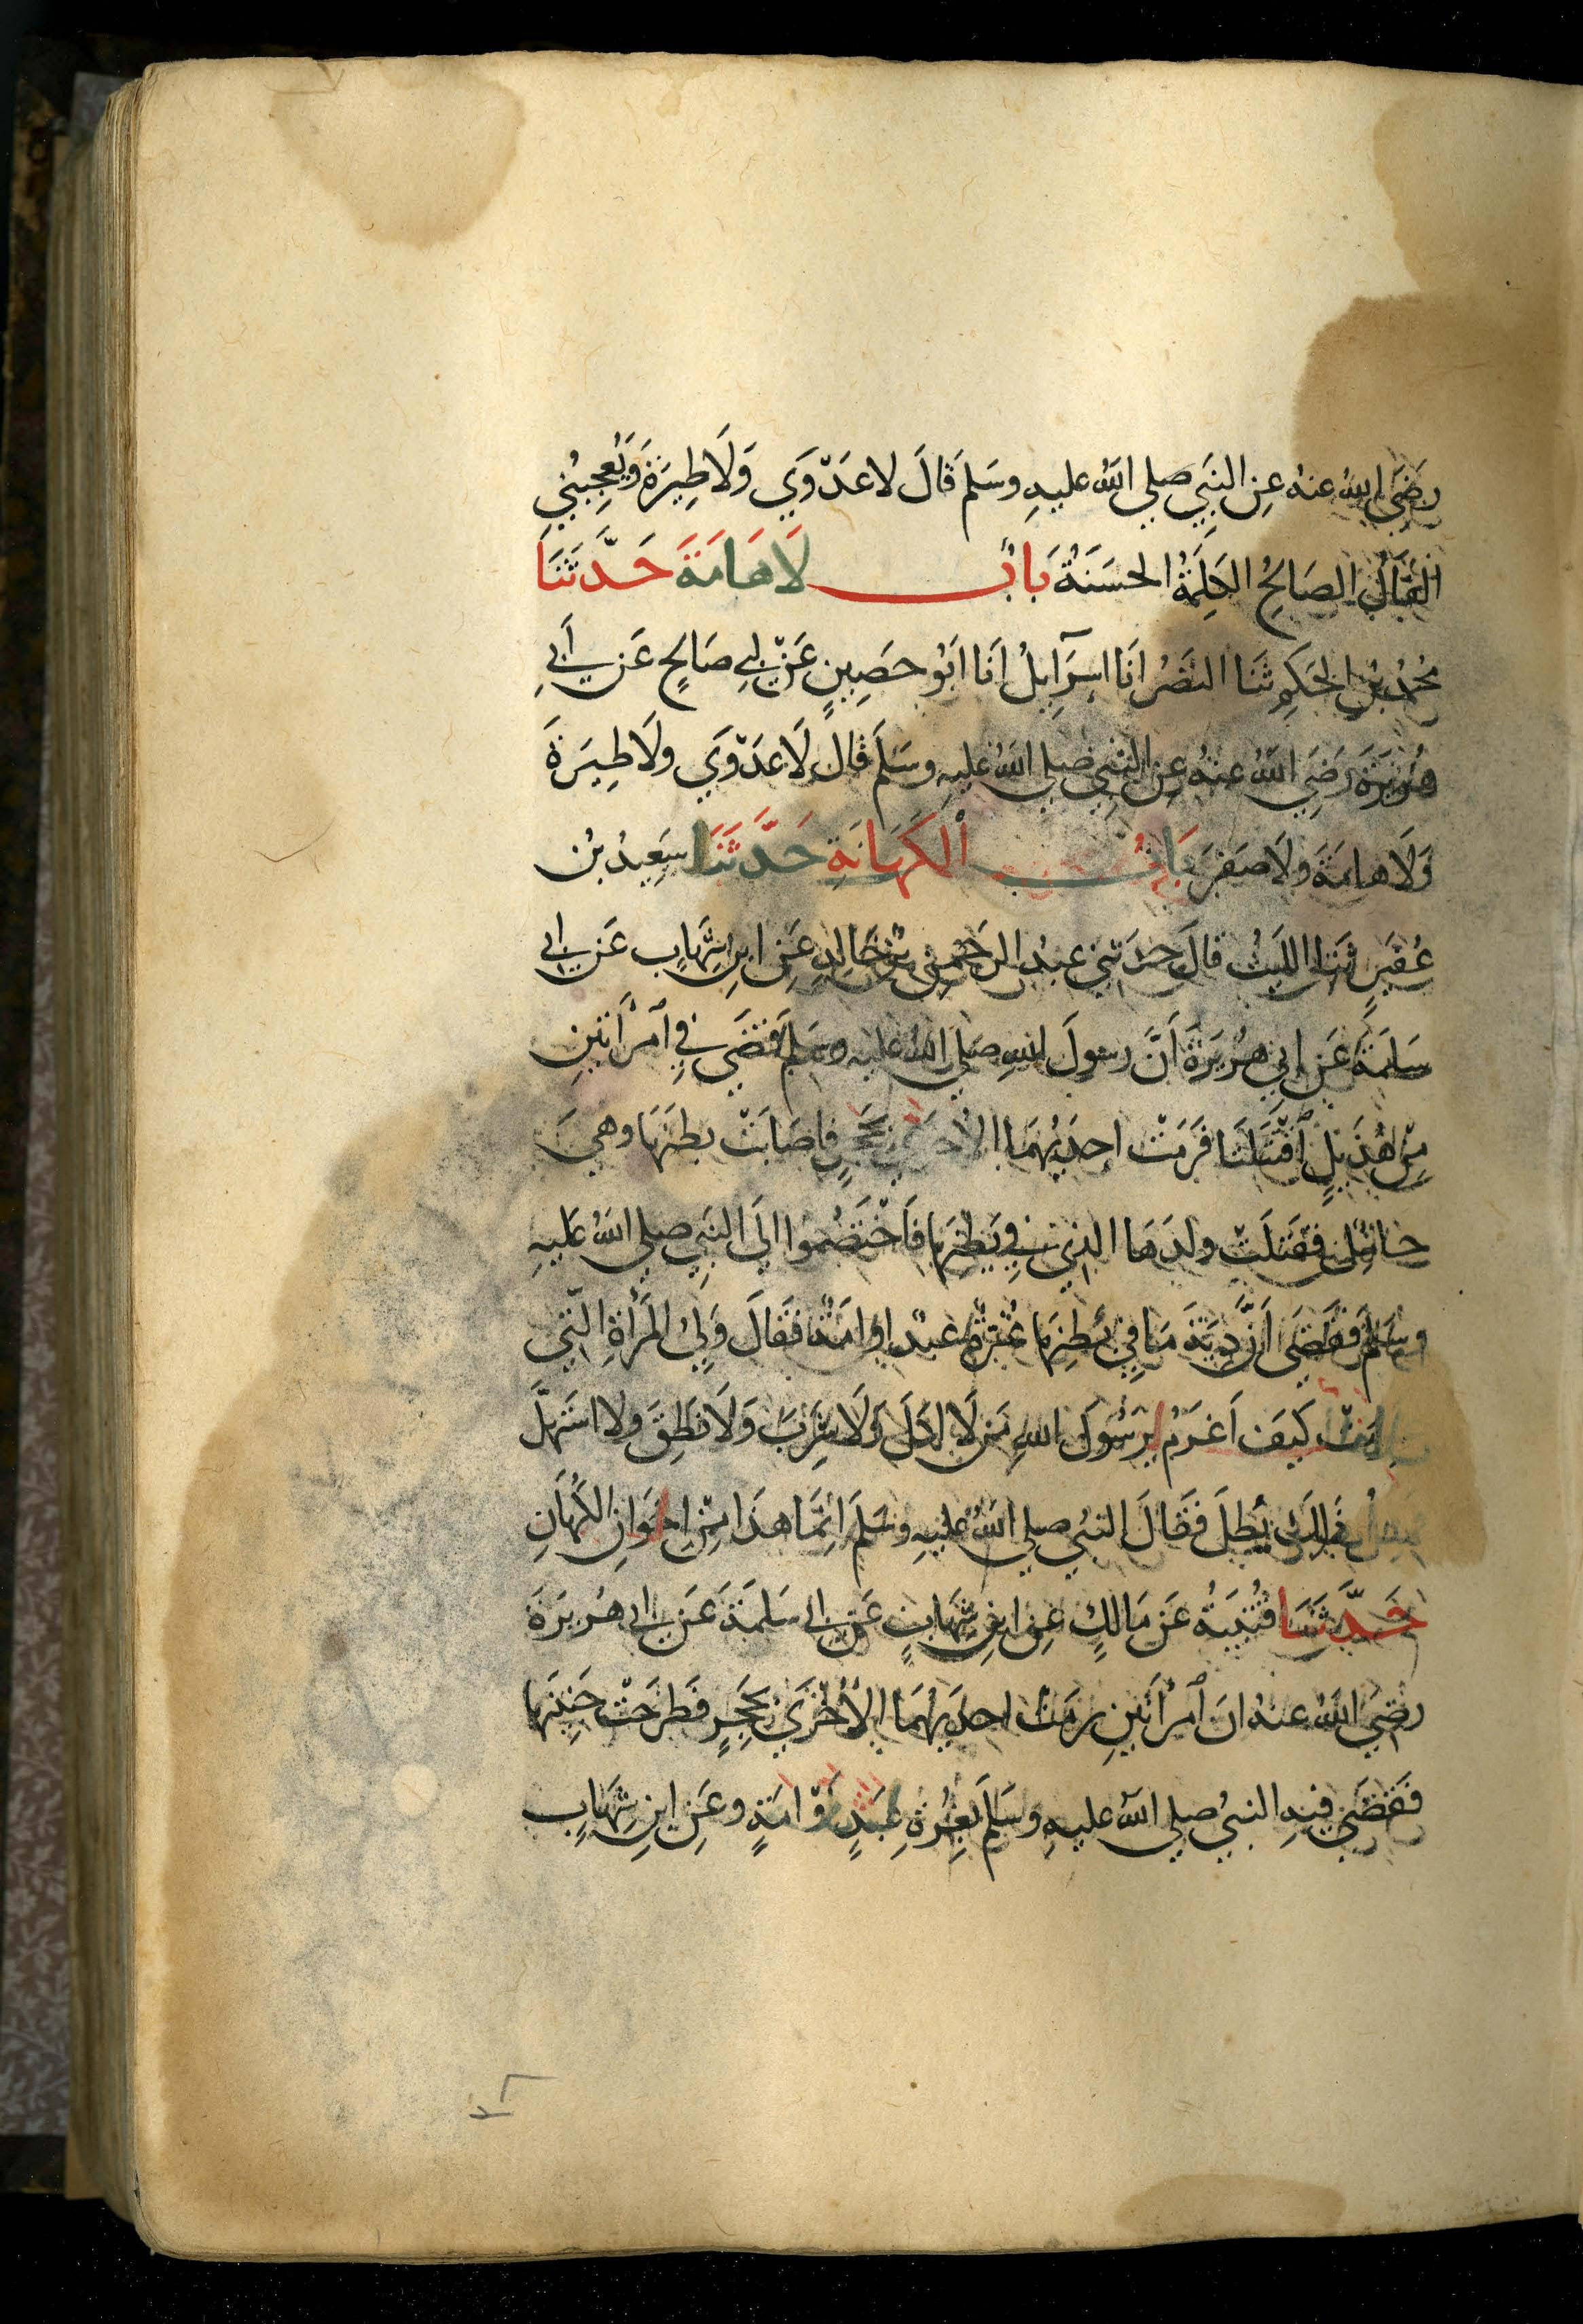 رَضِيَ اللهُ عنهُ عنِ النَّبِيِّ صلي اللهُ عليهِ وسَلم قَالَ لا عَدْوَي وَلَا طِيَرَةَ وَيُعْجِبُنِي
الفَالُ الصَالِحُ الكَلِمَةُ الحسَنَةُ بَابُ لَا هَامَةَ حَدَّثَنَا
محُمدُ بنُ الحَكَمِ ثَنَا النَضرُ انَا اسرَآئِيلُ انَا ابُو حَصِينٍ عَنْ ابي صَالحٍ عَن أَبِي
هُرَيرَةَ رَضِيَ اللهُ عنهُ عنِ النَّبِي صلي اللهُ عليهِ وسَلمَ قَالَ لَا عَدْوَي ولَا طِيَرَةَ
وَلَا هامَةَ ولَا صَفرَ بَابُ الكَهَانَةِ حَدَّثَنَا سَعِيدُ بنُ
عُفَيرٍ ثَنَا الليثُ قالَ حدَثني عبدُ الرَحمنِ بنُ خَالدٍ عَنِ ابنِ شِهَابٍ عَن ابي
سَلَمَةَ عَن ابي هُرَيرَةَ أَنَّ رسولَ اللهِ صَلي اللهُ عليهِ وسَلمَ قَضَي فِي امْرَأَتَينِ
مِن هُذَيلٍ اقْتَتَلَتَا فَرَمَتْ احِدَيهُمَا الأُخرَي بحَجَرٍ فاصَابَتْ بطنَهَا وهيَ
حَامِلٌ فقتَلَتْ ولدَهَا الذِي فِي بَطنِهَا فَاخْتَصَمُوا الَي النَبِي صلي اللهُ عَليهِ
وسَلمَ فقَضَي أنَّ دِيَةَ مَا فِي بَطنِهَا غُرَّةٌ عَبدٌ او امَةٌ فَقَالَ وَلِيُ المَرأةِ الَّتي
كَيفَ اَغرَمُ يرَسُولَ اللهِ مَن لَا اكلَ وَلَا شَرِبَ وَلَا نَطَقَ ولا استَهَلَّ
يُطَلَ فَقَالَ النبيُ صلي اللهُ عليهِ وسَلمَ انِمَّا هذَا مِن اخِوَانِ الكُهانِ
حَدَّثَنَا قُتَيبَةُ عَن مَالكٍ عَنِ ابنِ شِهَابٍ عَن ابي سَلَمَةَ عَن ابي هُرَيرَةَ
رضيَ اللهُ عنهُ انَ امرأَتَينِ رمَتْ احِدَيهُمَا الأُخرَي بحَجَرٍ فطرَحَتْ جَنِينَها
فقَضَي فيهِ النبيُ صلي اللهُ عليهِ وسَلمَ بغُرةٍ عَبدٍ أوْ امَةٍ وعَنِ ابنِ شِهَابٍ